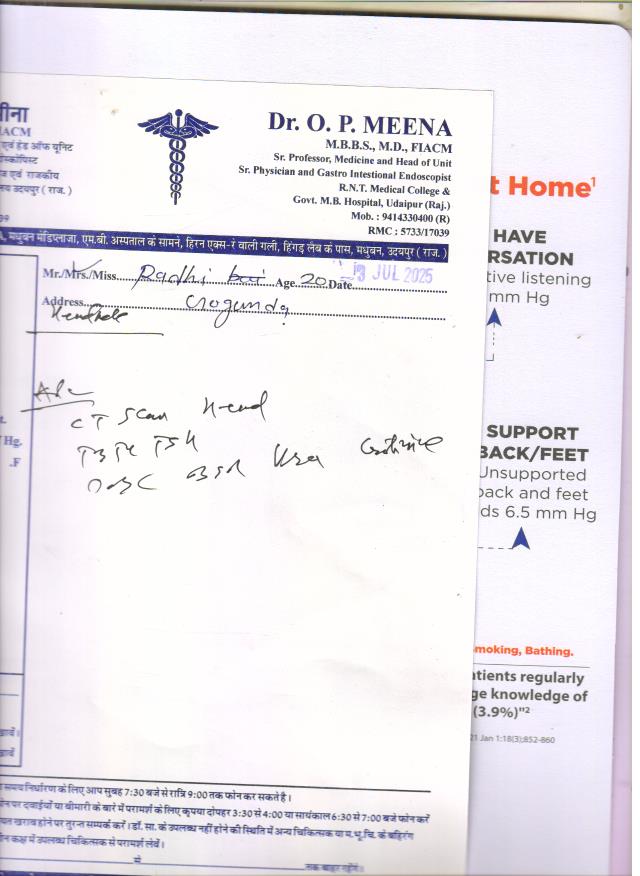 मीना
IACM
एवं हेड ऑफ यूनिट
स्कोपिस्ट
ज एवं राजकीय
लय उदयपुर ( राज. )
39
Dr. O. P. MEENA
M.B.B.S., M.D., FIACM
Sr. Professor, Medicine and Head of Unit
Sr. Physician and Gastro Intestional Endoscopist
R.N.T. Medical College &
Govt. M.B. Hospital, Udaipur (Raj.)
Mob. : 9414330400 (R)
RMC : 5733/17039
मधुबन मेडिप्लाजा, एम.बी. अस्पताल के सामने, हिरन एक्स-रे वाली गली, हिंगड़ लैब के पास, मधुबन, उदयपुर ( राज. )
Mr./Mrs./Miss Radhi Bai Age 20 Date 13 JUL 2025
Address Gogunda
Adv
CT Scan Head
T3 T4 TSH
CBC BSR Urea Creatinine
t.
Hg.
.F
t Home1
HAVE
RSATION
tive listening
mm Hg
SUPPORT
BACK/FEET
Unsupported
back and feet
ds 6.5 mm Hg
moking, Bathing.
atients regularly
ge knowledge of
(3.9%)"2
21 Jan 1:18(3);852-860
समय निर्धारण के लिए आप सुबह 7:30 बजे से रात्रि 9:00 तक फोन कर सकते है।
न पर दवाईयों या बीमारी के बारे में परामर्श के लिए कृपया दोपहर 3:30 से 4:00 या सायंकाल 6:30 से 7:00 बजे फोन करें
यत खराब होने पर तुरन्त सम्पर्क करें। डॉ. सा. के उपलब्ध नहीं होने की स्थिति में अन्य चिकित्सक या म.भू.चि. के बहिरंग
न कक्ष में उपलब्ध चिकित्सक से परामर्श लेवें।
से तक बाहर रहेंगे।